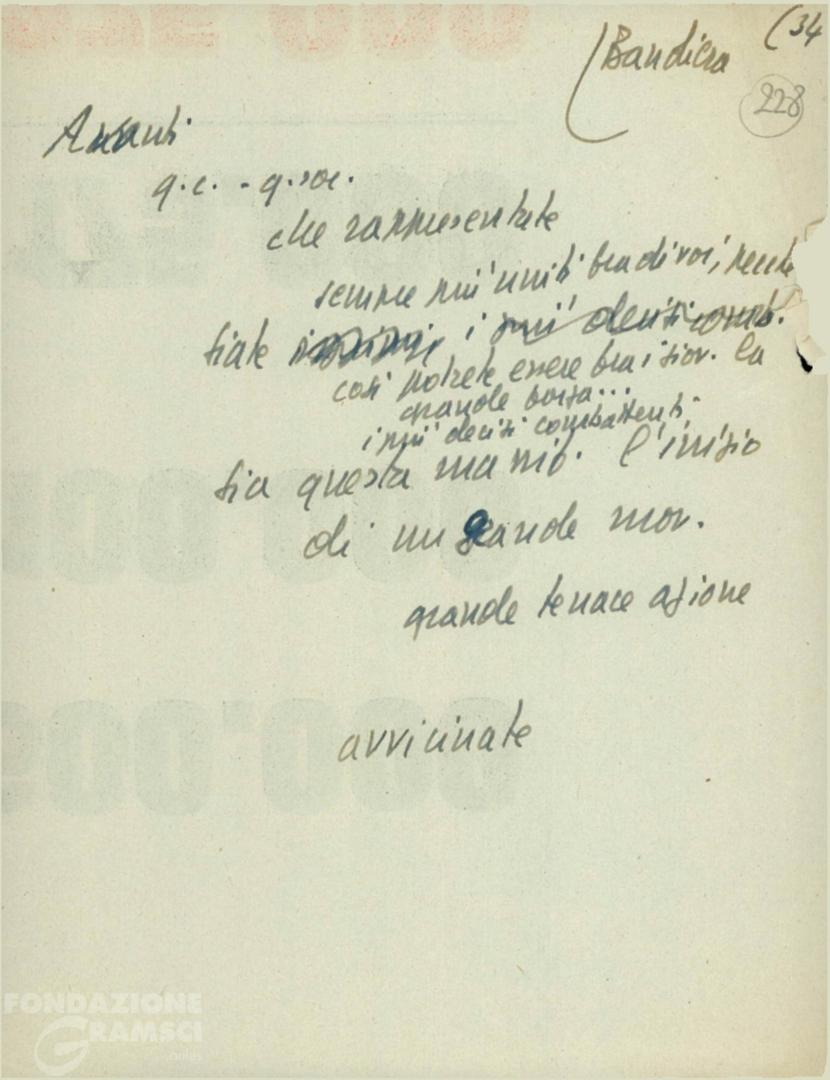 (34
(Bandiera
228
Avanti
g.c. - g.soc.
che rappresentate
sempre più uniti tra di voi,
siate i più decisi comb.
così potrete essere tra i giov. la
grande forza...
i più decisi combattenti.
sia questa manif. l'inizio
di un grande mov.
grande tenace azione
avvicinate
FONDAZIONE
GRAMSCI